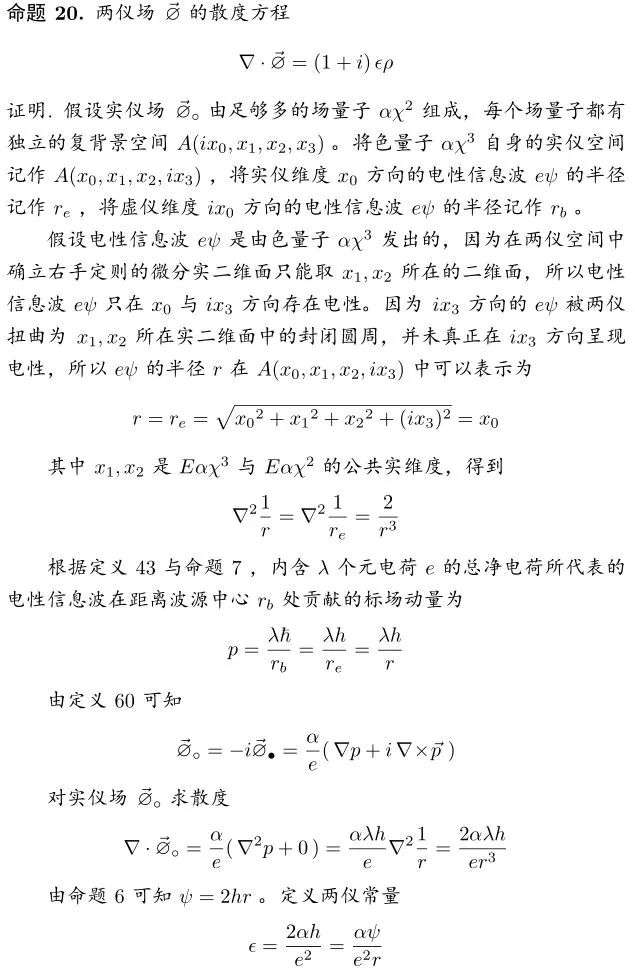 命题 20. 两仪场 $\vec{\varnothing}$ 的散度方程
$$\nabla \cdot \vec{\varnothing} = (1+i)\,\epsilon\rho$$
证明. 假设实仪场 $\vec{\varnothing}_{\circ}$ 由足够多的场量子 $\alpha\chi^2$ 组成，每个场量子都有
独立的复背景空间 $A(ix_0, x_1, x_2, x_3)$ 。将色量子 $\alpha\chi^3$ 自身的实仪空间
记作 $A(x_0, x_1, x_2, ix_3)$ ，将实仪维度 $x_0$ 方向的电性信息波 $e\psi$ 的半径
记作 $r_e$ ，将虚仪维度 $ix_0$ 方向的电性信息波 $e\psi$ 的半径记作 $r_b$ 。
假设电性信息波 $e\psi$ 是由色量子 $\alpha\chi^3$ 发出的，因为在两仪空间中
确立右手定则的微分实二维面只能取 $x_1, x_2$ 所在的二维面，所以电性
信息波 $e\psi$ 只在 $x_0$ 与 $ix_3$ 方向存在电性。因为 $ix_3$ 方向的 $e\psi$ 被两仪
扭曲为 $x_1, x_2$ 所在实二维面中的封闭圆周，并未真正在 $ix_3$ 方向呈现
电性，所以 $e\psi$ 的半径 $r$ 在 $A(x_0, x_1, x_2, ix_3)$ 中可以表示为
$$r = r_e = \sqrt{{x_0}^2 + {x_1}^2 + {x_2}^2 + (ix_3)^2} = x_0$$
其中 $x_1, x_2$ 是 $E\alpha\chi^3$ 与 $E\alpha\chi^2$ 的公共实维度，得到
$$\nabla^2 \frac{1}{r} = \nabla^2 \frac{1}{r_e} = \frac{2}{r^3}$$
根据定义 43 与命题 7 ，内含 $\lambda$ 个元电荷 $e$ 的总净电荷所代表的
电性信息波在距离波源中心 $r_b$ 处贡献的标场动量为
$$p = \frac{\lambda\hbar}{r_b} = \frac{\lambda h}{r_e} = \frac{\lambda h}{r}$$
由定义 60 可知
$$\vec{\varnothing}_{\circ} = -i\vec{\varnothing}_{\bullet} = \frac{\alpha}{e}(\,\nabla p + i\,\nabla \times \vec{p}\,)$$
对实仪场 $\vec{\varnothing}_{\circ}$ 求散度
$$\nabla \cdot \vec{\varnothing}_{\circ} = \frac{\alpha}{e}(\,\nabla^2 p + 0\,) = \frac{\alpha\lambda h}{e}\nabla^2 \frac{1}{r} = \frac{2\alpha\lambda h}{er^3}$$
由命题 6 可知 $\psi = 2hr$ 。定义两仪常量
$$\epsilon = \frac{2\alpha h}{e^2} = \frac{\alpha\psi}{e^2 r}$$